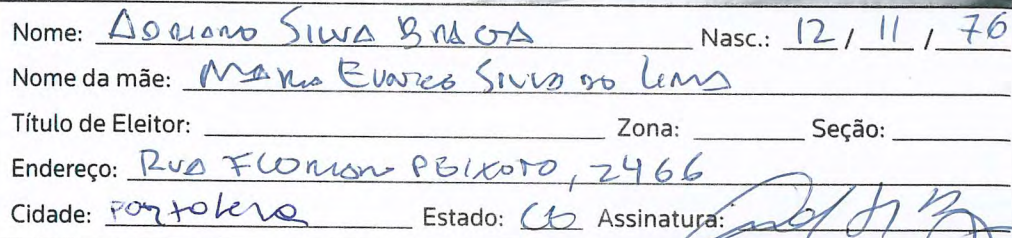 Nome: ADRIANO SILVA BRAGA Nasc.: 12 / 11 / 76
Nome da mãe: MARIA SILVA DO LIMA
Título de Eleitor: Zona: Seção:
Endereço: RUA FLORIANO PEIXOTO, 2466
Cidade: FORTALEZA Estado: CE Assinatura: